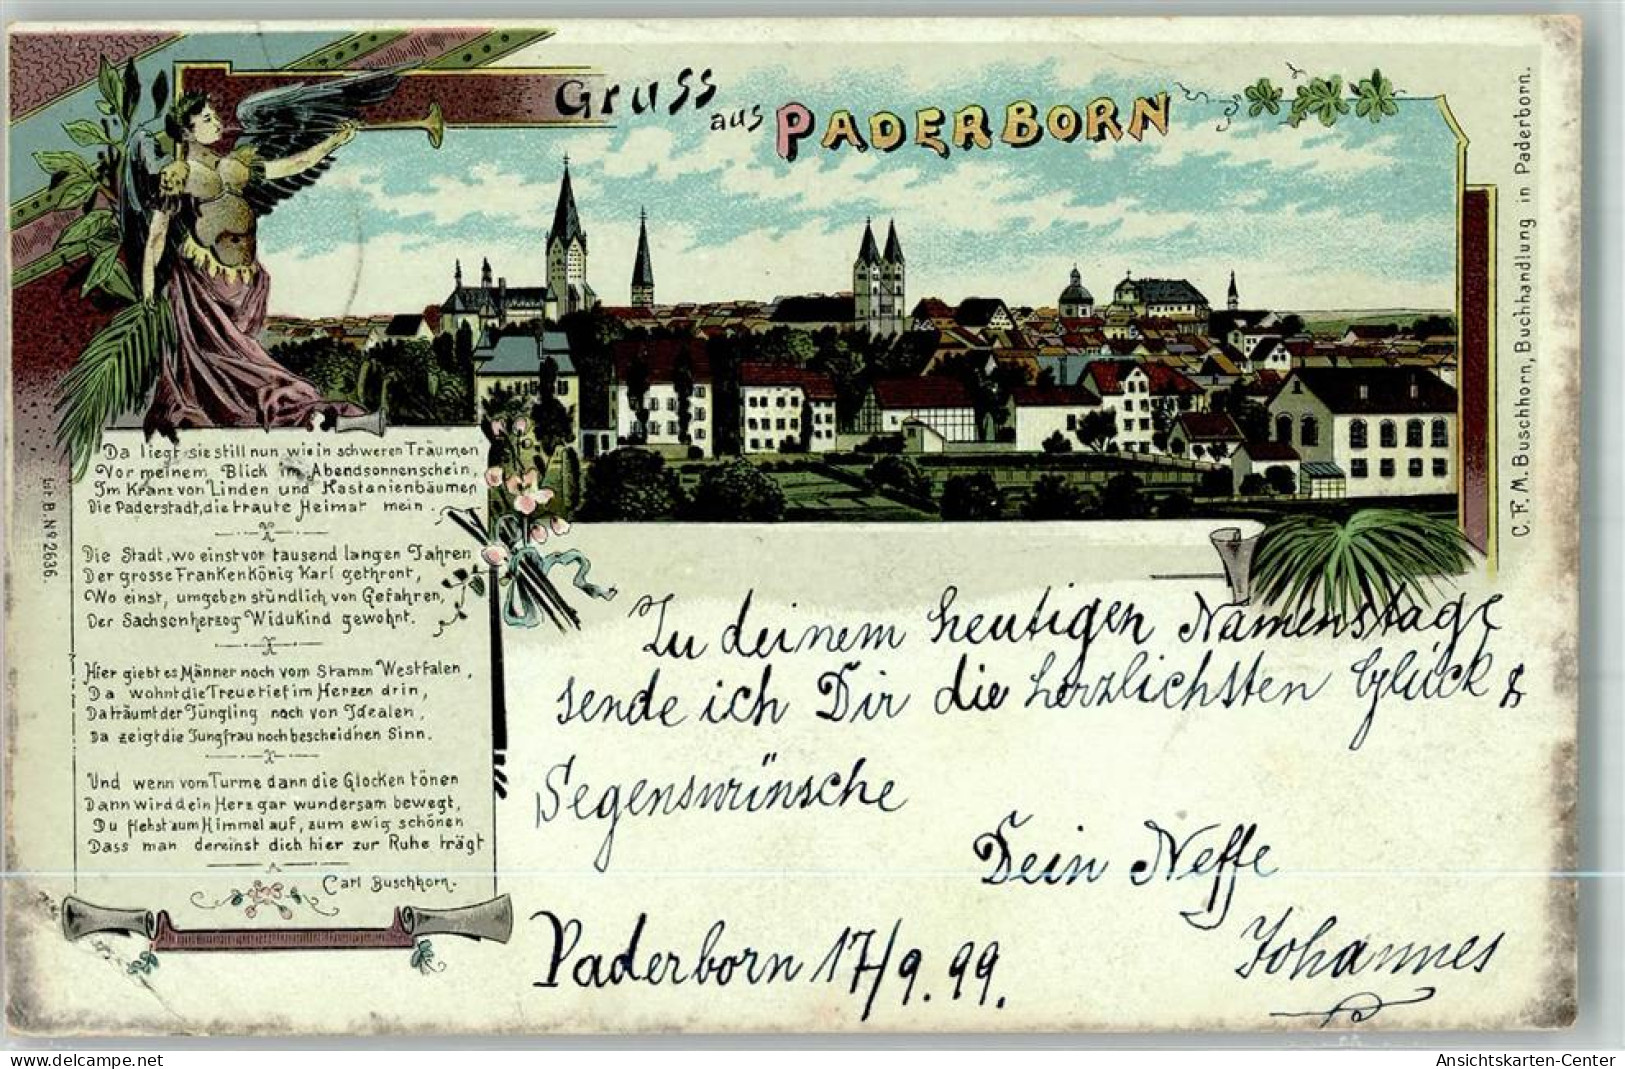 Gruss aus PADERBORN
C. F. M. Buschhorn, Buchhandlung in Paderborn.
Da liegt sie still nun wie in schweren Träumen
Vor meinem Blick im Abendsonnenschein,
Im Kranz von Linden und Kastanienbäumen
Die Paderstadt, die traute Heimat mein.
Die Stadt, wo einst vor tausend langen Jahren
Der grosse Frankenkönig Karl gethront,
Wo einst, umgeben stündlich von Gefahren,
Der Sachsenherzog Widukind gewohnt.
Hier giebt es Männer noch vom Stamm Westfalen,
Da wohnt die Treue tief im Herzen drin,
Da träumt der Jüngling noch von Idealen,
Da zeigt die Jungfrau noch bescheidnen Sinn.
Und wenn vom Turme dann die Glocken tönen
Dann wird dein Herz gar wundersam bewegt,
Du flehst zum Himmel auf, zum ewig schönen
Dass man dereinst dich hier zur Ruhe trägt
Carl Buschhorn.
lit. B. Nº 2636.
Zu deinem heutigen Namenstage
sende ich Dir die herzlichsten Glück &
Segenswünsche
Dein Neffe
Johannes
Paderborn 17/9. 99.
www.oldthing.de
Ansichtskarten-Center